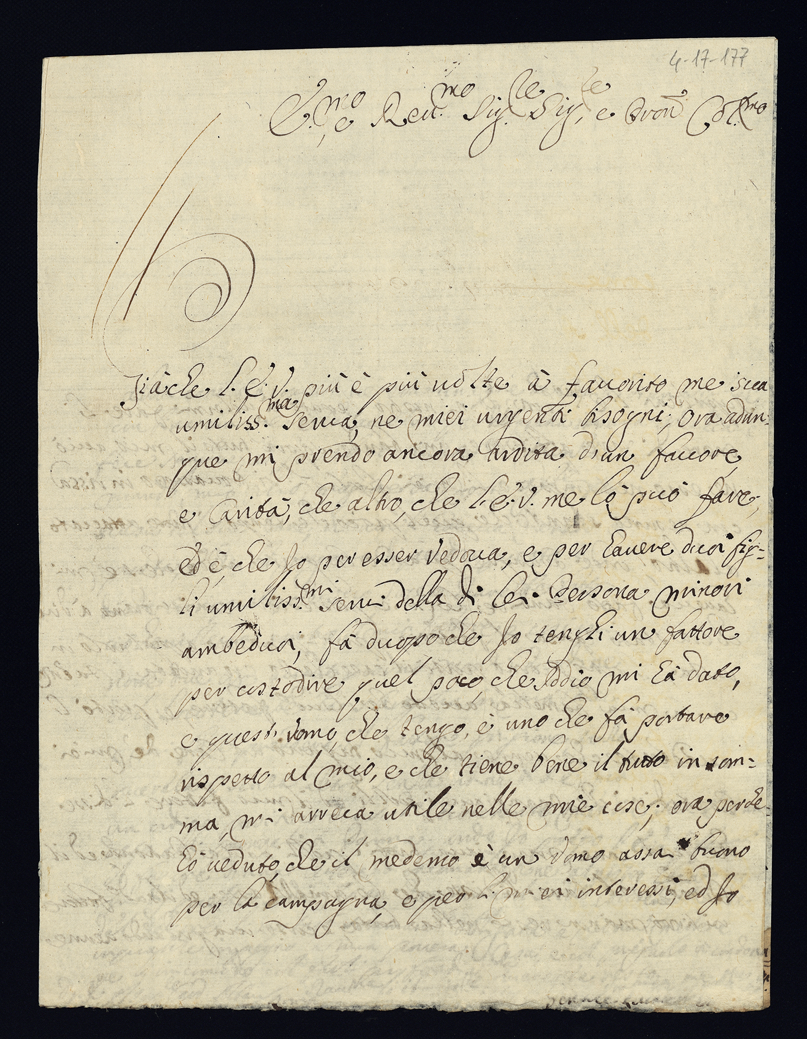 4-17-177
E.mo e Reu.mo Sig.re Sig.re e Pron. Col.mo
Giàche l'E.V. più è più uolte à fauorito me sua
umiliss.ma serua, ne miei urgenti bisogni; ora adun-
que mi prendo ancora ardita d'un fauore,
e Carità, che altro, che l'E.V. me lo può fare,
ed'è, che Io per esser Vedoua, e per hauere duoi fig-
li umiliss.mi serui della di lei Persona minori
ambeduoi, fà duopo che Io tenghi un fattore
per custodire quel poco, che Iddio mi hà dato,
e questi vomo, che tengo, è uno che fà portare
rispetto al mio, e che tiene bene il tutto in som-
ma, mi arreca utile nelle mie cose; ora perche
hò ueduto, che il medemo è un vomo assai buono
per la campagna, e per li miei interessi, ed Io